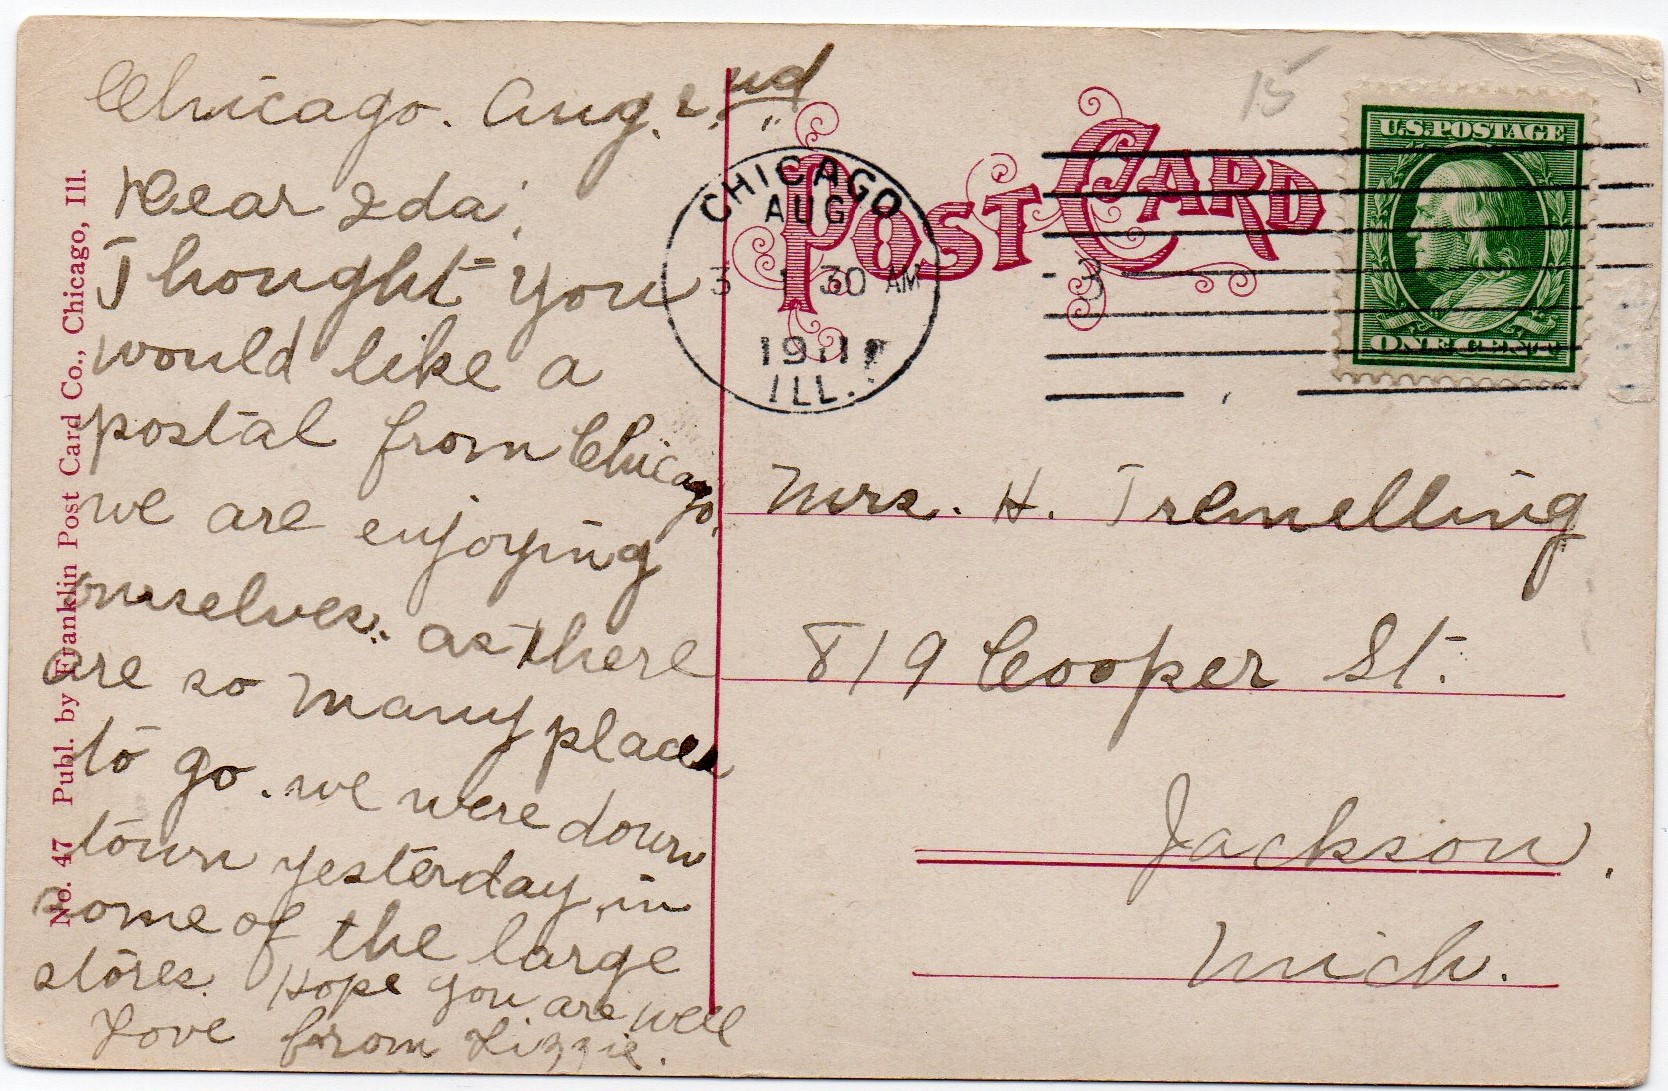 Chicago. Aug. 2nd
Dear Ida,
Thought you
would like a
postal from Chicago,
we are enjoying
ourselves. as there
are so many places
to go. we were down
town yesterday, in
some of the large
stores. Hope you are well
Love from Lizzie.
No. 47 Publ. by Franklin Post Card Co., Chicago, Ill.
POST CARD
15
CHICAGO
AUG
3 1 30 AM
1911
ILL.
3
U.S. POSTAGE
ONE CENT
Mrs. H. Tremelling
819 Cooper St.
Jackson,
Mich.